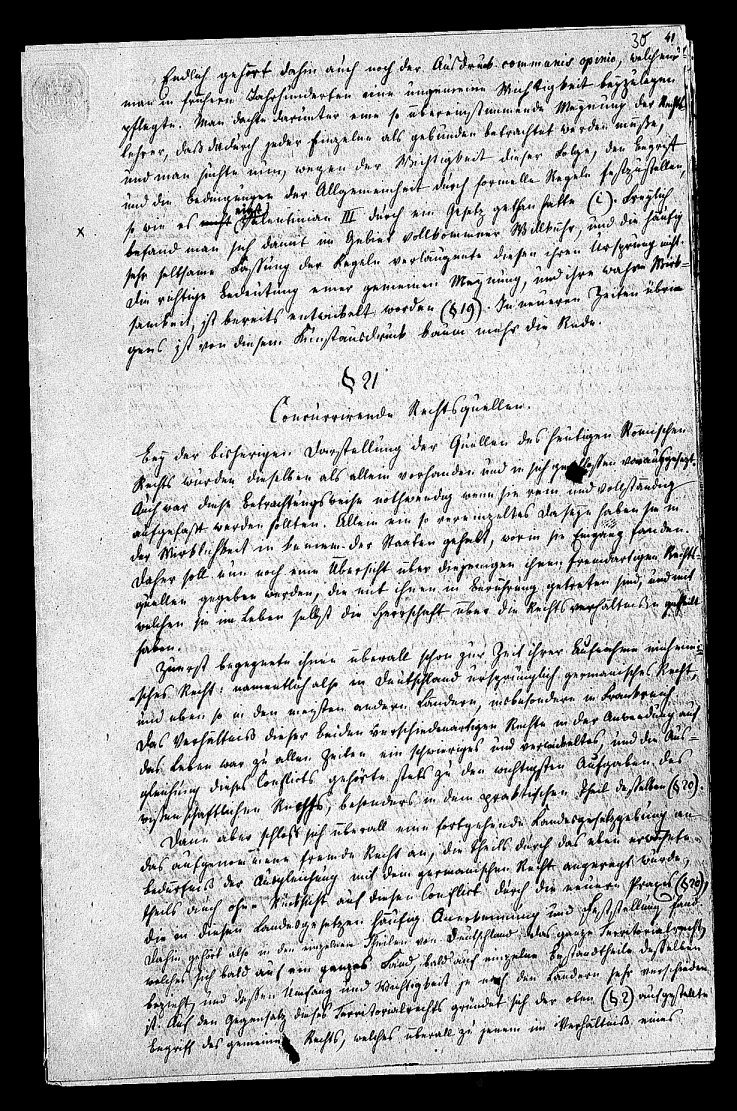 30 41
Endlich gehört dahin auch noch der Ausdruck communis opinio, welchem
man in frühern Jahrhunderten eine ungemeine Wichtigkeit beyzulegen
pflegte. Man dachte darunter eine so übereinstimmende Meynung der Rechts-
lehrer, daß dadurch jeder Einzelne als gebunden betrachtet werden müsse,
und man suchte nun, wegen der Wichtigkeit dieser Folge, den Begriff
und die Bedingungen der Allgemeinheit durch formelle Regeln festzustellen,
x so wie es Valentinian III durch ein Gesetz gethan hatte (c). Freylich
befand man sich damit im Gebiet vollkommener Willkühr, und die häufig
sehr seltsame Fassung der Regeln verläugnete diesen ihren Ursprung nicht.
Die richtige Bedeutung einer gemeinen Meynung, und ihre wahre Wirk-
samkeit, ist bereits entwickelt worden (§ 19). In neueren Zeiten übri-
gens ist von diesem Kunstausdruck kaum mehr die Rede.
§ 21
Concurrirende Rechtsquellen.
Bey der bisherigen Darstellung der Quellen des heutigen Römischen
Rechts wurden dieselben als allein vorhanden und in sich geschlossen vorausgesetzt.
Auch war diese Betrachtungsweise nothwendig wenn sie rein und vollständig
aufgefaßt werden sollten. Allein ein so vereinzeltes Daseyn haben sie in
der Wirklichkeit in keinem der Staaten gehabt, worin sie Eingang fanden.
Daher soll nun noch eine Übersicht über diejenigen ihnen fremdartigen Rechts-
quellen gegeben werden, die mit ihnen in Berührung getreten sind, und mit
welchen sie im Leben selbst die Herrschaft über die Rechtsverhältnisse getheilt
haben.
Zuerst begegnete ihnen überall schon zur Zeit ihrer Aufnahme einheimi-
sches Recht: namentlich also in Deutschland ursprünglich germanisches Recht,
und eben so in den meisten andern Ländern, insbesondere in Frankreich.
Das Verhältniß dieser beiden verschiedenartigen Rechte in der Anwendung auf
das Leben war zu allen Zeiten ein schwieriges und verwickeltes, und die Aus-
gleichung dieses Conflicts gehörte stets zu den wichtigsten Aufgaben des
wissenschaftlichen Rechts, besonders in dem praktischen Theil desselben (§ 20).
Dann aber schloß sich überall eine fortgehende Landesgesetzgebung an
das aufgenommene fremde Recht an, die theils durch das eben erwähnte
Bedürfniß der Ausgleichung mit dem germanischen Recht angeregt wurde,
theils auch ohne Rücksicht auf diesen Conflict durch die neuere Praxis (§ 20),
die in diesen Landesgesetzen häufig Anerkennung und Feststellung fand.
Dahin gehört also in den einzelnen Theilen von Deutschland das ganze Territorialrecht,
welches sich bald auf ein ganzes Land, bald auf einzelne Bestandtheile desselben
bezieht, und dessen Umfang und Wichtigkeit je nach den Ländern sehr verschieden
ist. Auf den Gegensatz dieses Territorialrechts gründet sich der oben (§ 2) aufgestellte
Begriff des gemeinen Rechts, welches überall zu jenem im Verhältniß eines